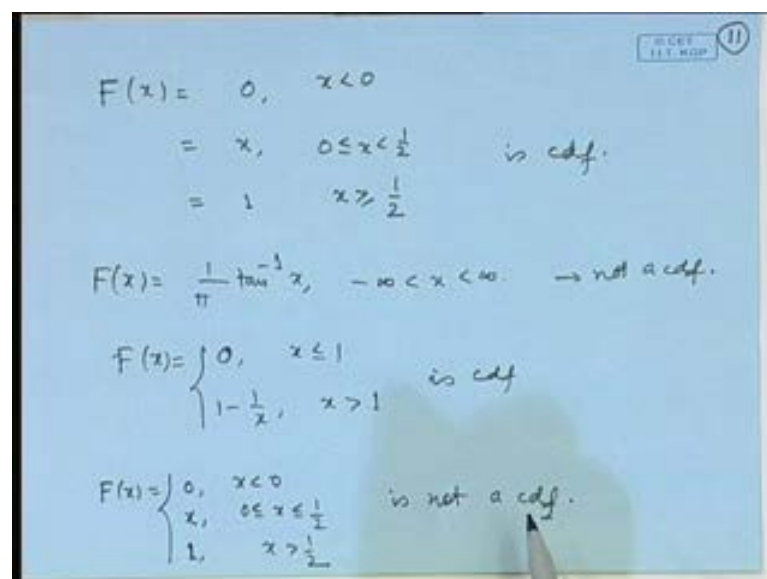 © CET
I.I.T. KGP
11
F(x) = 0, x < 0
= x, 0 ≤ x < 1/2 is cdf.
= 1 x ≥ 1/2
F(x) = 1/π tan⁻¹ x, -∞ < x < ∞. → not a cdf.
F(x) = { 0, x ≤ 1
1 - 1/x, x > 1 is cdf
F(x) = { 0, x < 0
x, 0 ≤ x ≤ 1/2 is not a cdf.
1, x > 1/2